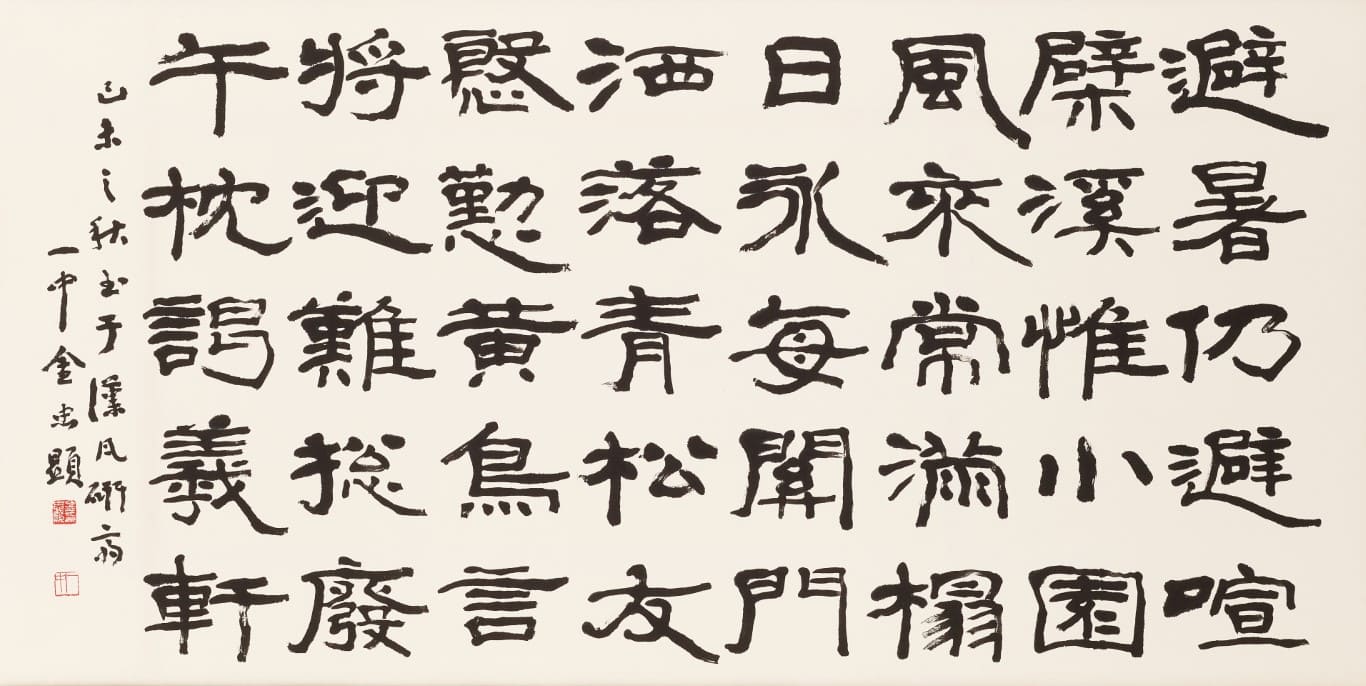 避暑仍避喧
檗溪惟小園
風來常滿榻
日永每關門
洒落青松友
慇懃黃鳥言
將迎難揔廢
午枕謁羲軒
己未之秋書于硏齋
一中金忠顯